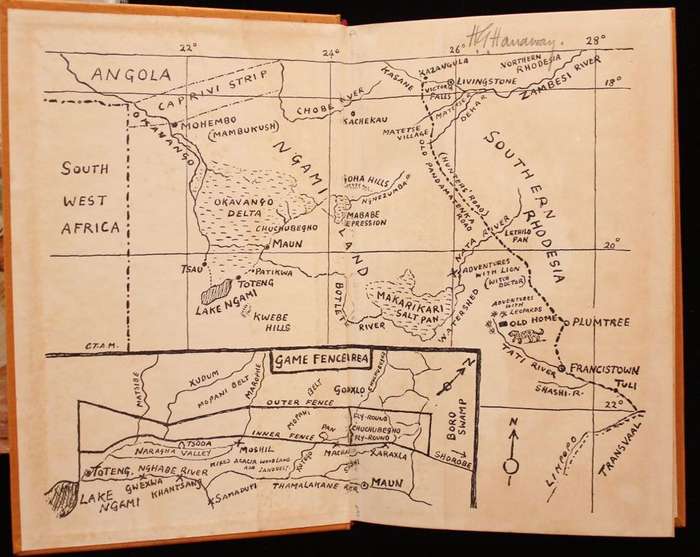 H J Hanaway.
22°
24°
26°
28°
ANGOLA
CAPRIVI STRIP
OKAVANGO
MOHEMBO
(MAMBUKUSH)
CHOBE RIVER
KACHEKAU
KASANE
KAZANGULA
VICTORIA
FALLS
LIVINGSTONE
NORTHERN
RHODESIA
ZAMBESI RIVER
18°
MATETSE
DEKAR
MATETSE
VILLAGE
OLD PANDAMATENKA
ROAD
(HUNTERS ROAD)
SOUTHERN
RHODESIA
SOUTH
WEST
AFRICA
NGAMILAND
OKAVANGO
DELTA
CHUCHUBEGHO
GOHA HILLS
NGHEZUMBA
MABABE
DEPRESSION
MAUN
TSAU
PATIKWA
TOTENG
LAKE NGAMI
KWEBE
HILLS
BOTLETLE
RIVER
MAKARIKARI
SALT PAN
NATA RIVER
LETHILO
PAN
20°
ADVENTURES
WITH LION
(WITCH
DOCTOR)
WATERSHED
ADVENTURES
WITH
LEOPARDS
OLD HOME
PLUMTREE
TATI RIVER
FRANCISTOWN
TULI
SHASHI-R-
22°
N
LIMPOPO
TRANSVAAL
C.T.A.M.
GAME FENCE AREA
N
MATSIBE
XUDUM
MOPANI BELT
MAROPHE
MOPANI
BELT
GOAXLO
CHUCHUBEGHO
OUTER FENCE
INNER FENCE
FLY-ROUND
CHUCHUBEGHO
FLY-ROUND
PAN
BORO
SWAMP
TSODA
NARAGHA VALLEY
MOSHIL
MIXED ACACIA WOODLAND
AND SANDBELT
XARAXLA
SHOROBE
TOTENG.
NGHABE RIVER
GWEXWA
KHANTSANG
SAMADUPI
THAMALAKANE RVR
MAUN
LAKE
NGAMI